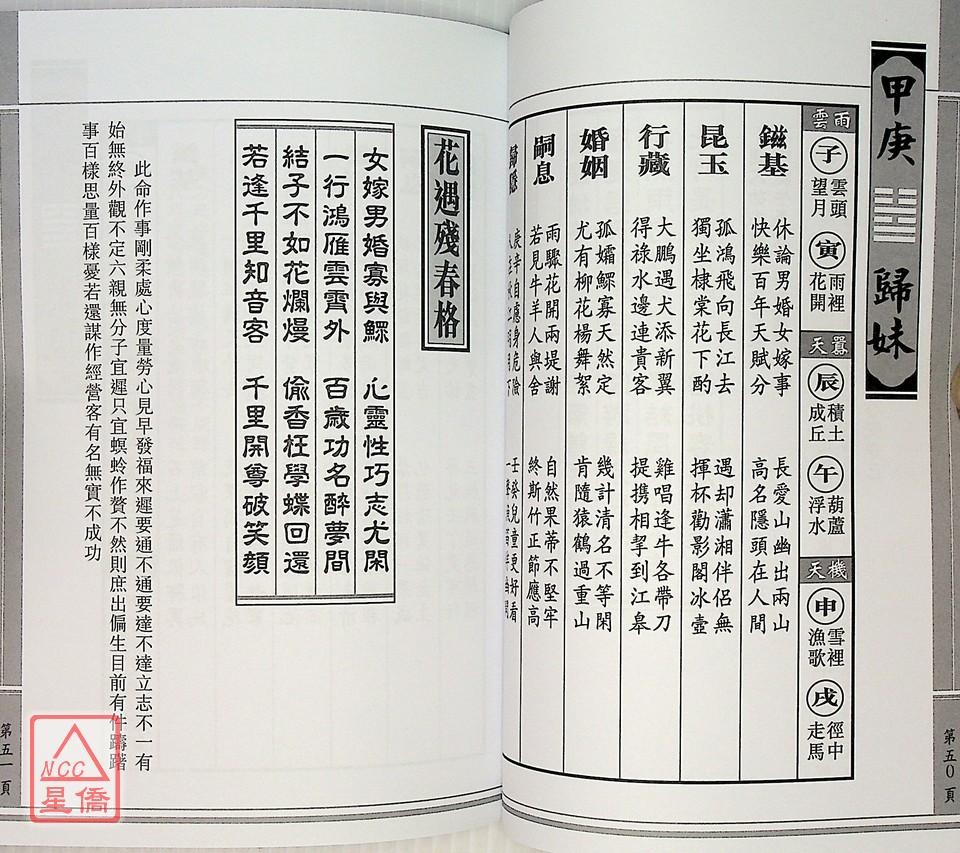 甲庚 歸妹
雲雨
子 雲頭望月
寅 雨裡花開
天羅
辰 積土成丘
午 葫蘆浮水
天機
申 雪裡漁歌
戌 徑中走馬
鎡基
休論男婚女嫁事 長愛山幽出兩山
快樂百年天賦分 高名隱頭在人間
昆玉
孤鴻飛向長江去 遇却瀟湘伴侶無
獨坐棣棠花下酌 揮杯勸影閣冰壺
行藏
大鵬遇犬添新翼 雞唱逢牛各帶刀
得祿水邊連貴客 提携相挈到江皋
婚姻
孤孀鰥寡天然定 幾計清名不等閑
尤有柳花楊舞絮 肯隨猿鶴過重山
嗣息
雨驟花開兩堤謝 自然果蒂不堅牢
若見牛羊人與舍 終斯竹正節應高
庚辛自應身危險 壬癸兒童更好看
第五0頁
花遇殘春格
女嫁男婚寡與鰥 心靈性巧志尤閑
一行鴻雁雲霄外 百歲功名醉夢間
結子不如花爛熳 偷香枉學蝶回還
若逢千里知音客 千里開尊破笑顏
此命作事剛柔處心度量勞心見早發福來遲要通不通要達不達立志不一有
始無終外觀不定六親無分子宜遲只宜螟蛉作贅不然則庶出偏生目前有件躊躇
事百樣思量百樣憂若還謀作經營客有名無實不成功
第五一頁
NCC
星僑